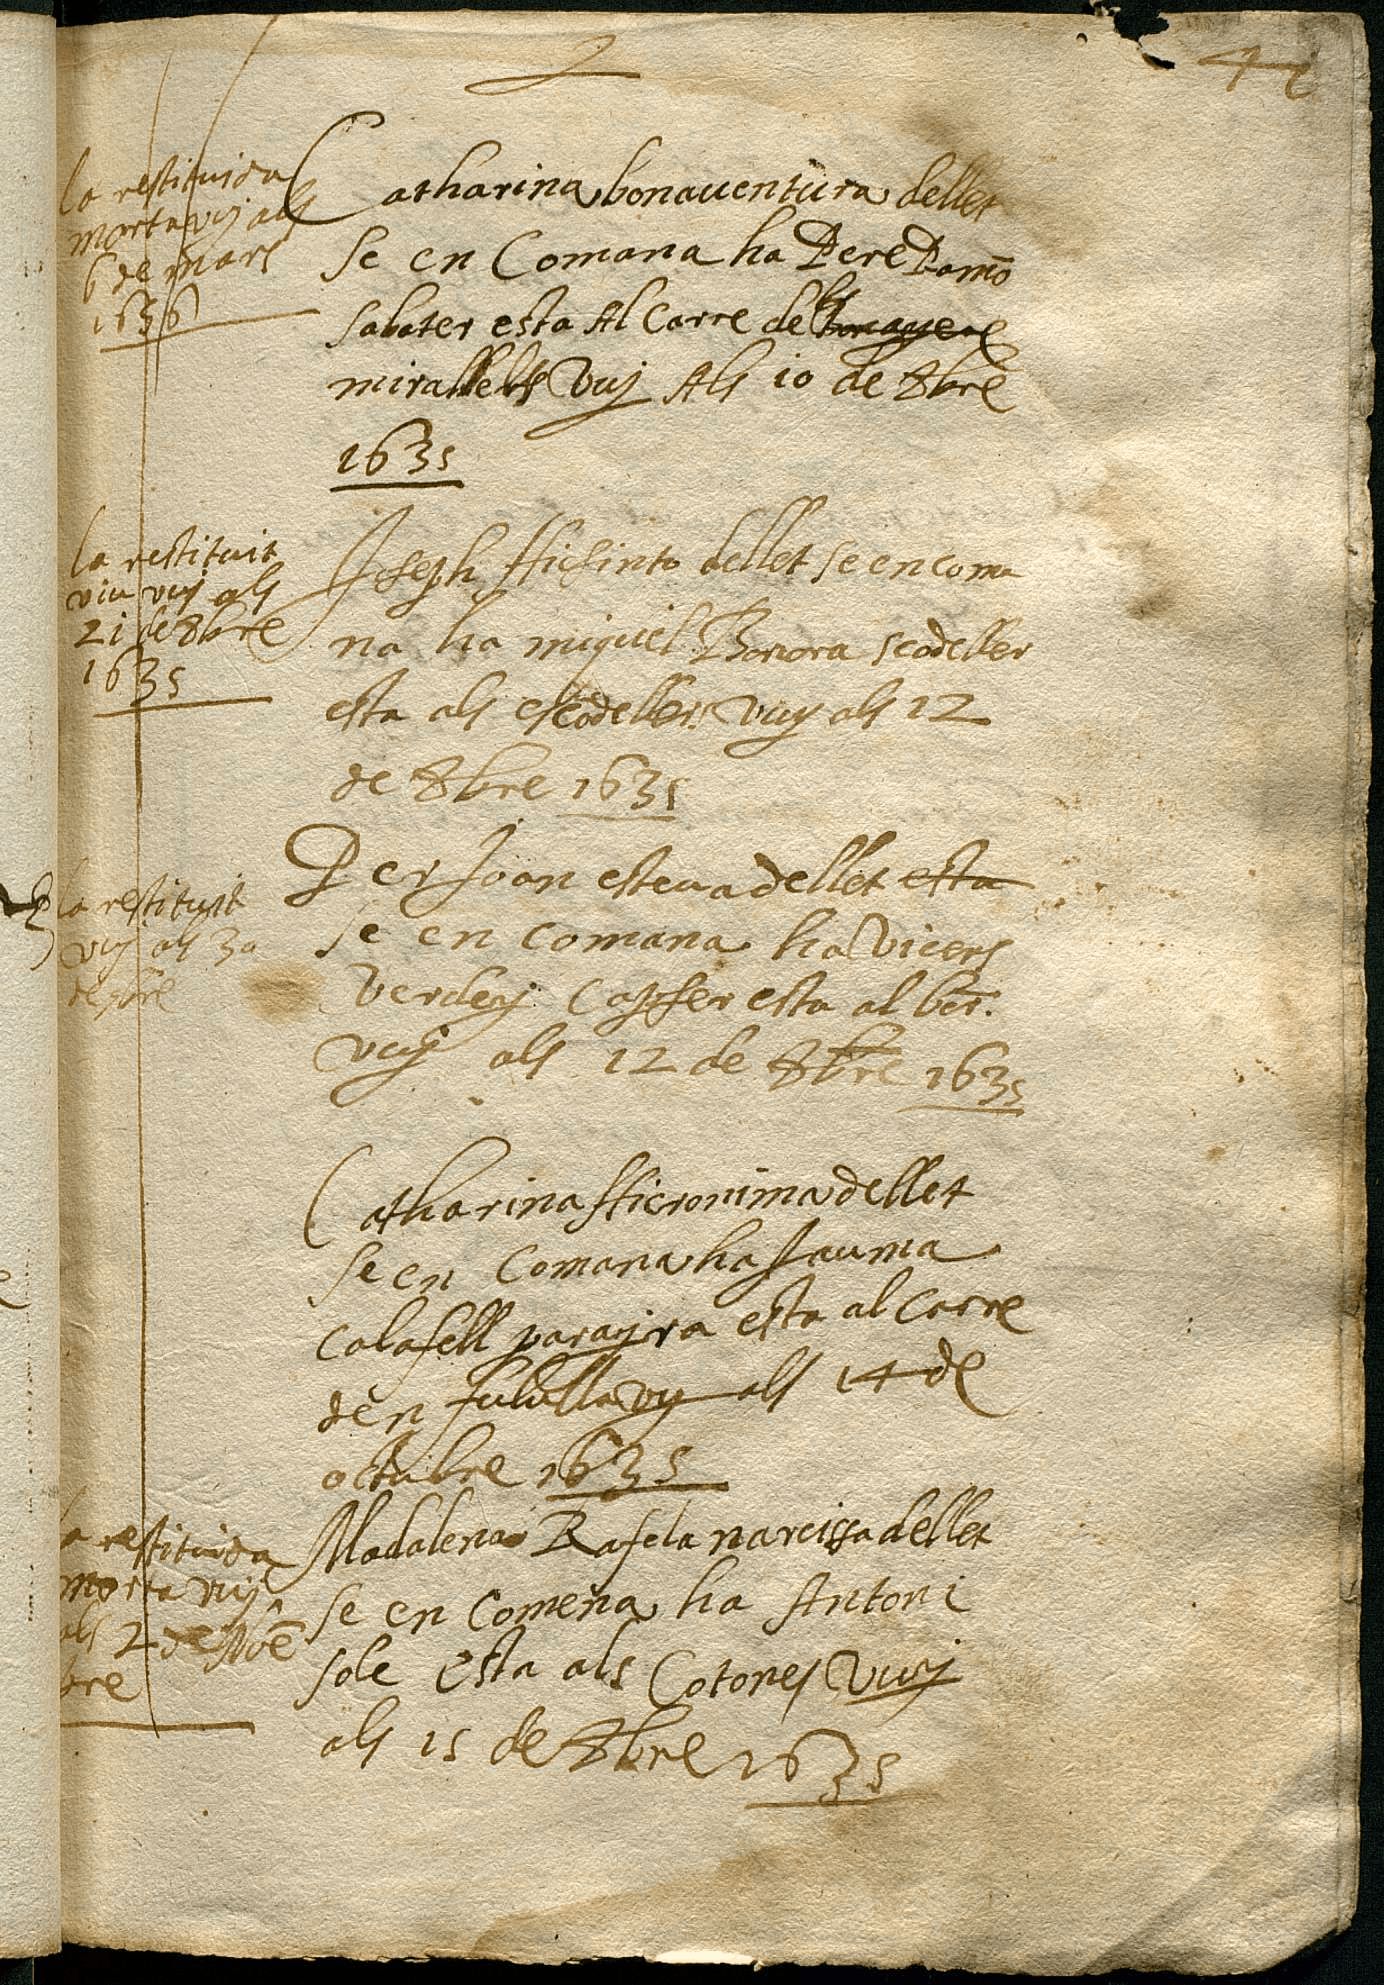 la restituida
morta vuj als
6 de mars
1636
Catharina bonauentura dellet
se en Comana ha Pere
sabater esta Al Carre dels
miralles Vuj Als 10 de 8bre
1635
la restituit
viu vuj als
21 de 8bre
1635
Joseph dellet se en coma
na ha miquel scodeller
esta als escodellers vuy als 12
de 8bre 1635
la restituit
vuj als 30
Per Joan esteua dellet esta
se en comana ha
esta al
vuj als 12 de 8bre 1635
Catharina Hieronima dellet
se en Comana ha Jauma
Calafell parayra esta al Carre
den vuj als 14 de
octubre 1635
la restituida
morta vuj
als 2 de Nove
bre
Madalena Rafela narcissa dellet
se en Comena ha Antoni
sole esta als Cotones Vuj
als 15 de 8bre 1635